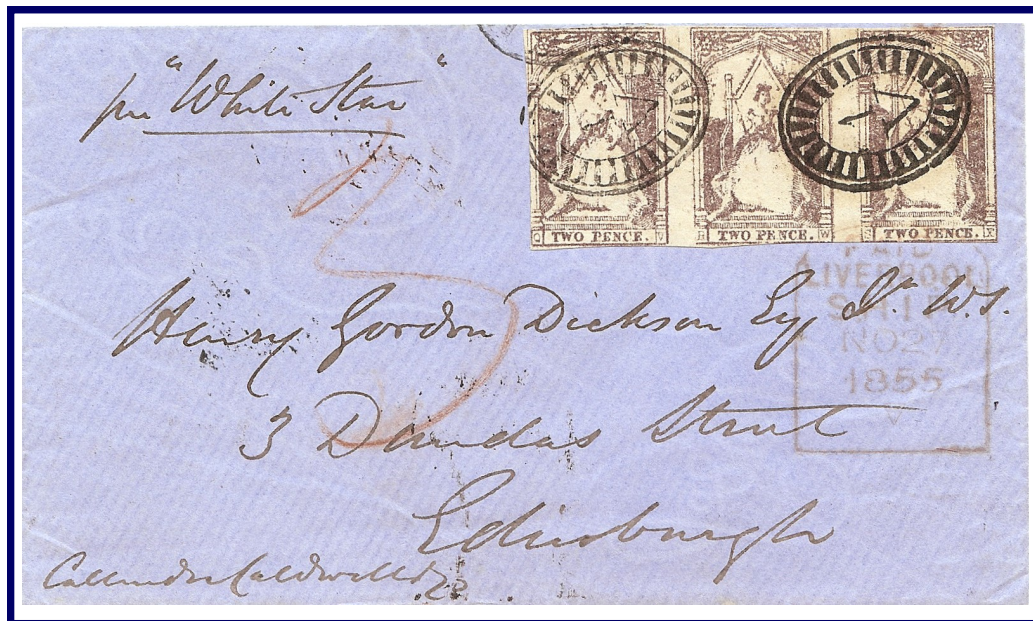 per "White Star"
TWO PENCE. TWO PENCE. TWO PENCE.
PAID
LIVERPOOL
SHIP
NO 27
1855
5
Henry Gordon Dickson Esq. W.S.
3 Dundas Street
Edinburgh